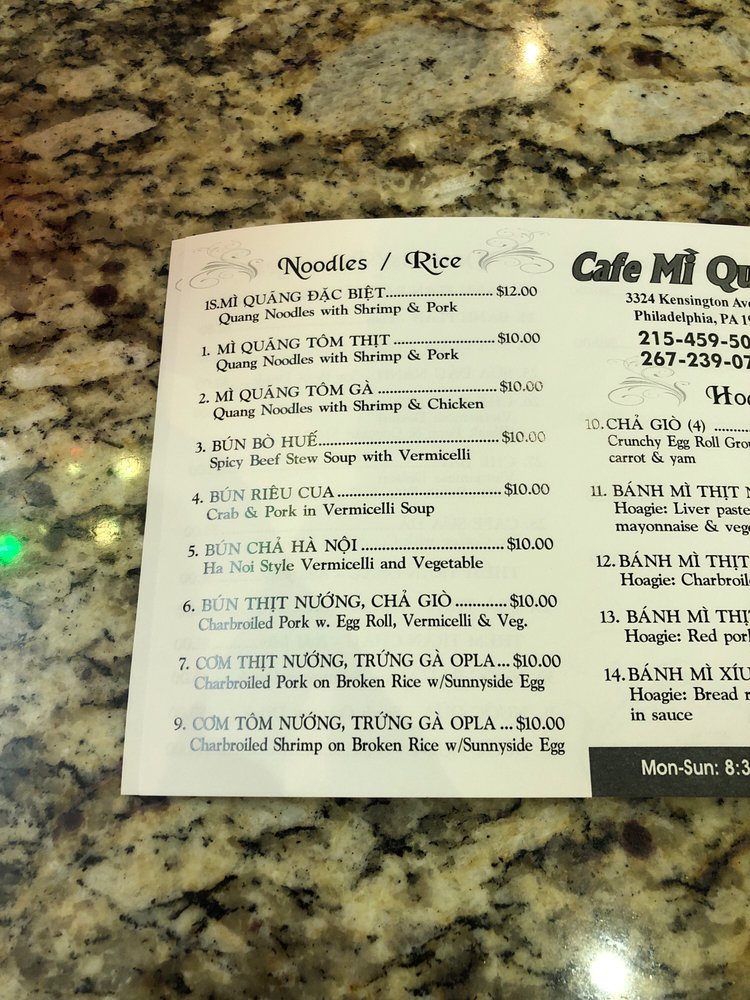 Noodles / Rice
1S.MÌ QUÃNG ĐẶC BIỆT.......................... $12.00
Quang Noodles with Shrimp & Pork
1. MÌ QUÃNG TÔM THỊT .......................... $10.00
Quang Noodles with Shrimp & Pork
2. MÌ QUÃNG TÔM GÀ .............................. $10.00
Quang Noodles with Shrimp & Chicken
3. BÚN BÒ HUẾ........................................... $10.00
Spicy Beef Stew Soup with Vermicelli
4. BÚN RIÊU CUA ....................................... $10.00
Crab & Pork in Vermicelli Soup
5. BÚN CHẢ HÀ NỘI .................................. $10.00
Ha Noi Style Vermicelli and Vegetable
6. BÚN THỊT NƯỚNG, CHẢ GIÒ ............ $10.00
Charbroiled Pork w. Egg Roll, Vermicelli & Veg.
7. CƠM THỊT NƯỚNG, TRỨNG GÀ OPLA... $10.00
Charbroiled Pork on Broken Rice w/Sunnyside Egg
9. CƠM TÔM NƯỚNG, TRỨNG GÀ OPLA ... $10.00
Charbroiled Shrimp on Broken Rice w/Sunnyside Egg
Cafe Mì Qu
3324 Kensington Ave
Philadelphia, PA 19
215-459-50
267-239-07
Hoa
10. CHẢ GIÒ (4) ........
Crunchy Egg Roll Grou
carrot & yam
11. BÁNH MÌ THỊT N
Hoagie: Liver paste
mayonnaise & vege
12. BÁNH MÌ THỊT
Hoagie: Charbroile
13. BÁNH MÌ THỊ
Hoagie: Red por
14. BÁNH MÌ XÍU
Hoagie: Bread r
in sauce
Mon-Sun: 8:3